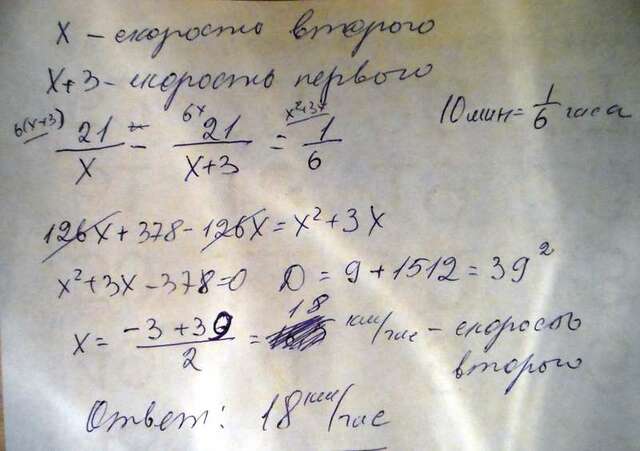 x – скорость второго
x+3 – скорость первого
10 мин = 1/6 часа
6(x+3) 21/x – 6x 21/(x+3) = x²+3x 1/6
126x + 378 – 126x = x² + 3x
x² + 3x – 378 = 0 D = 9 + 1512 = 39²
x = (–3 + 39)/2 = 18 км/час – скорость
второго
Ответ: 18 км/час